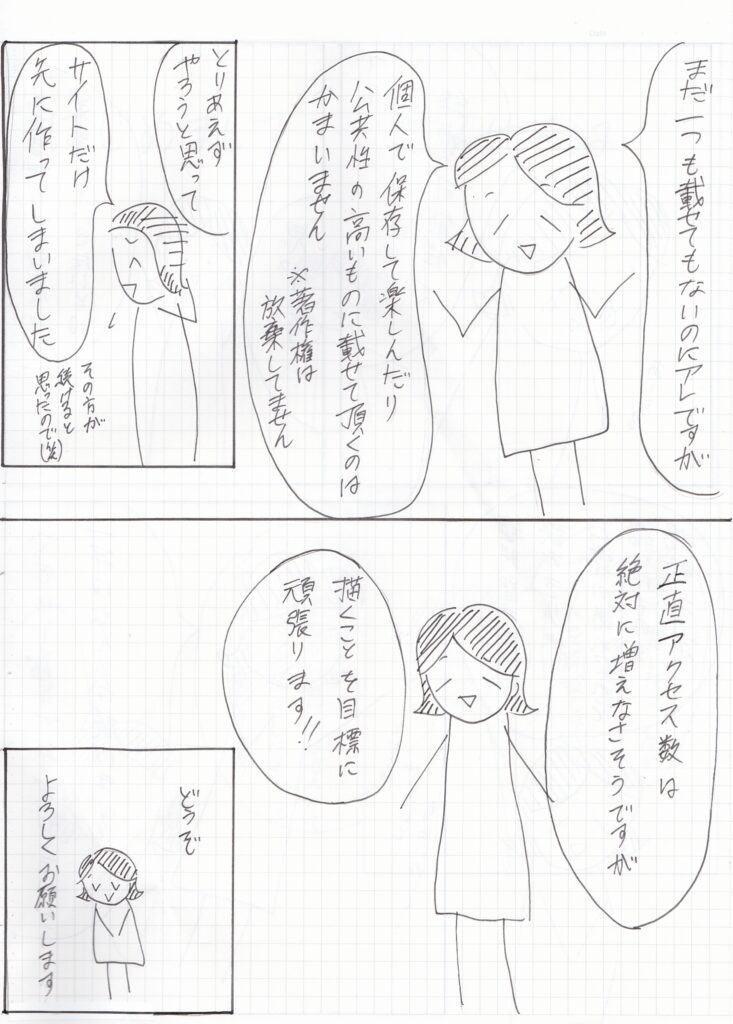 まだ一つも載せてもないのにアレですが
個人で保存して楽しんだり
公共性の高いものに載せて頂くのは
かまいません
※著作権は
放棄してません
とりあえず
やろうと思って
サイトだけ
先に作ってしまいました
その方が
続けると
思ったので(笑)
正直アクセス数は
絶対に増えなさそうですが
描くことを目標に
頑張ります!!
どうぞ
よろしくお願いします